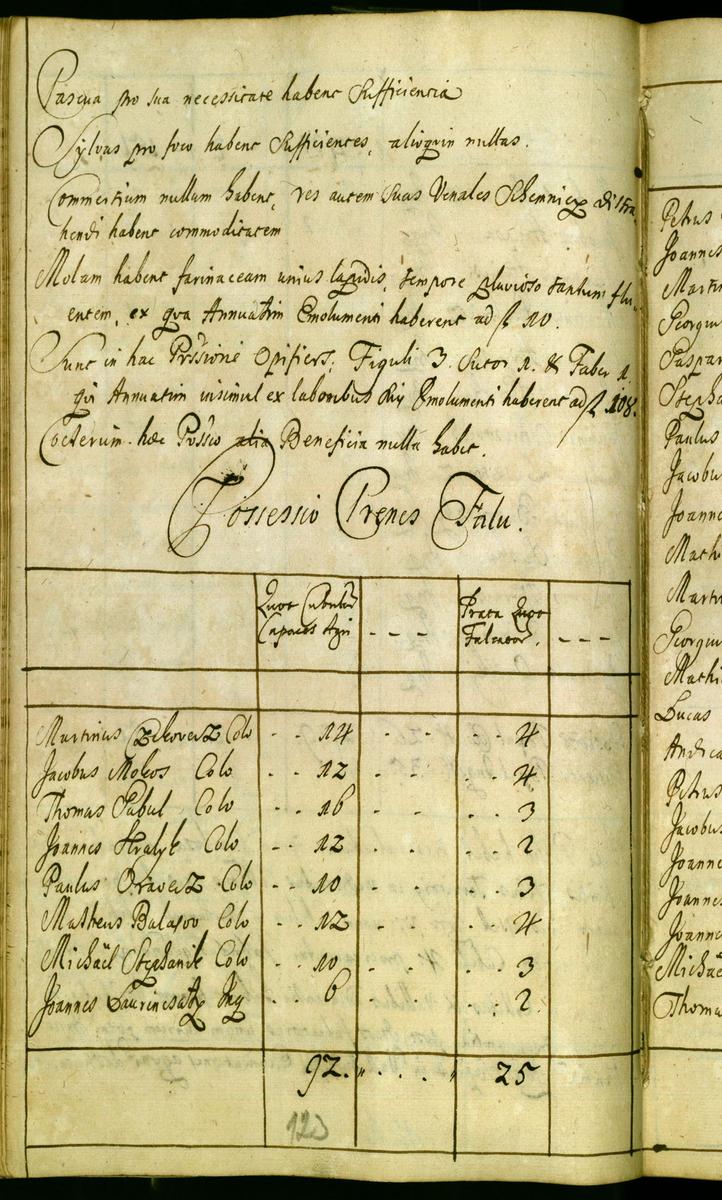 Pascua pro sua necessitate habent Sufficientia
Sylvas pro foco habent Sufficientes, alioqvin nullas.
Commertium nullum habent, res autem suas Venales Schemnicz distra-
hendi habent commoditatem
Molam habent farinaceam unius lapidis, tempore pluvioso tantum flu-
entem, ex qva Annuatim Emolumenti haberent ad f 10.
Sunt in hac Possione Opifices; Figuli 3. Sutor 1. & Faber 1.
qvi Annuatim insimul ex laboribus Emolumenti haberent ad f 108.
Coeterum haec Possio alia Beneficia nulla habet.
Possessio Prenes Falu.
Quot Cubulor Capaces Agri - - - Prata Quot Falcator. - - -
Martinus Colo - - 14 - - - - 4
Jacobus Mokos Colo - - 12 - - - - 4
Thomas Colo - - 16 - - - - 3
Joannes Kralyk Colo - - 12 - - - - 2
Paulus Oravecz Colo - - 10 - - - - 3
Mattheus Colo - - 12 - - - - 4
Michaël Stephanik Colo - - 10 - - - - 3
Joannes Inq - - 6 - - - - 2
92. " . . . " 25
123
Petrus
Joannes
Martin
Georgiu
Gaspar
Stepha
Paulus
Jacobu
Joanne
Math
Martin
Georgiu
Mathi
Lucas
Andrea
Petrus
Jacobu
Joanne
Joannes
Joanne
Michaë
Thoma